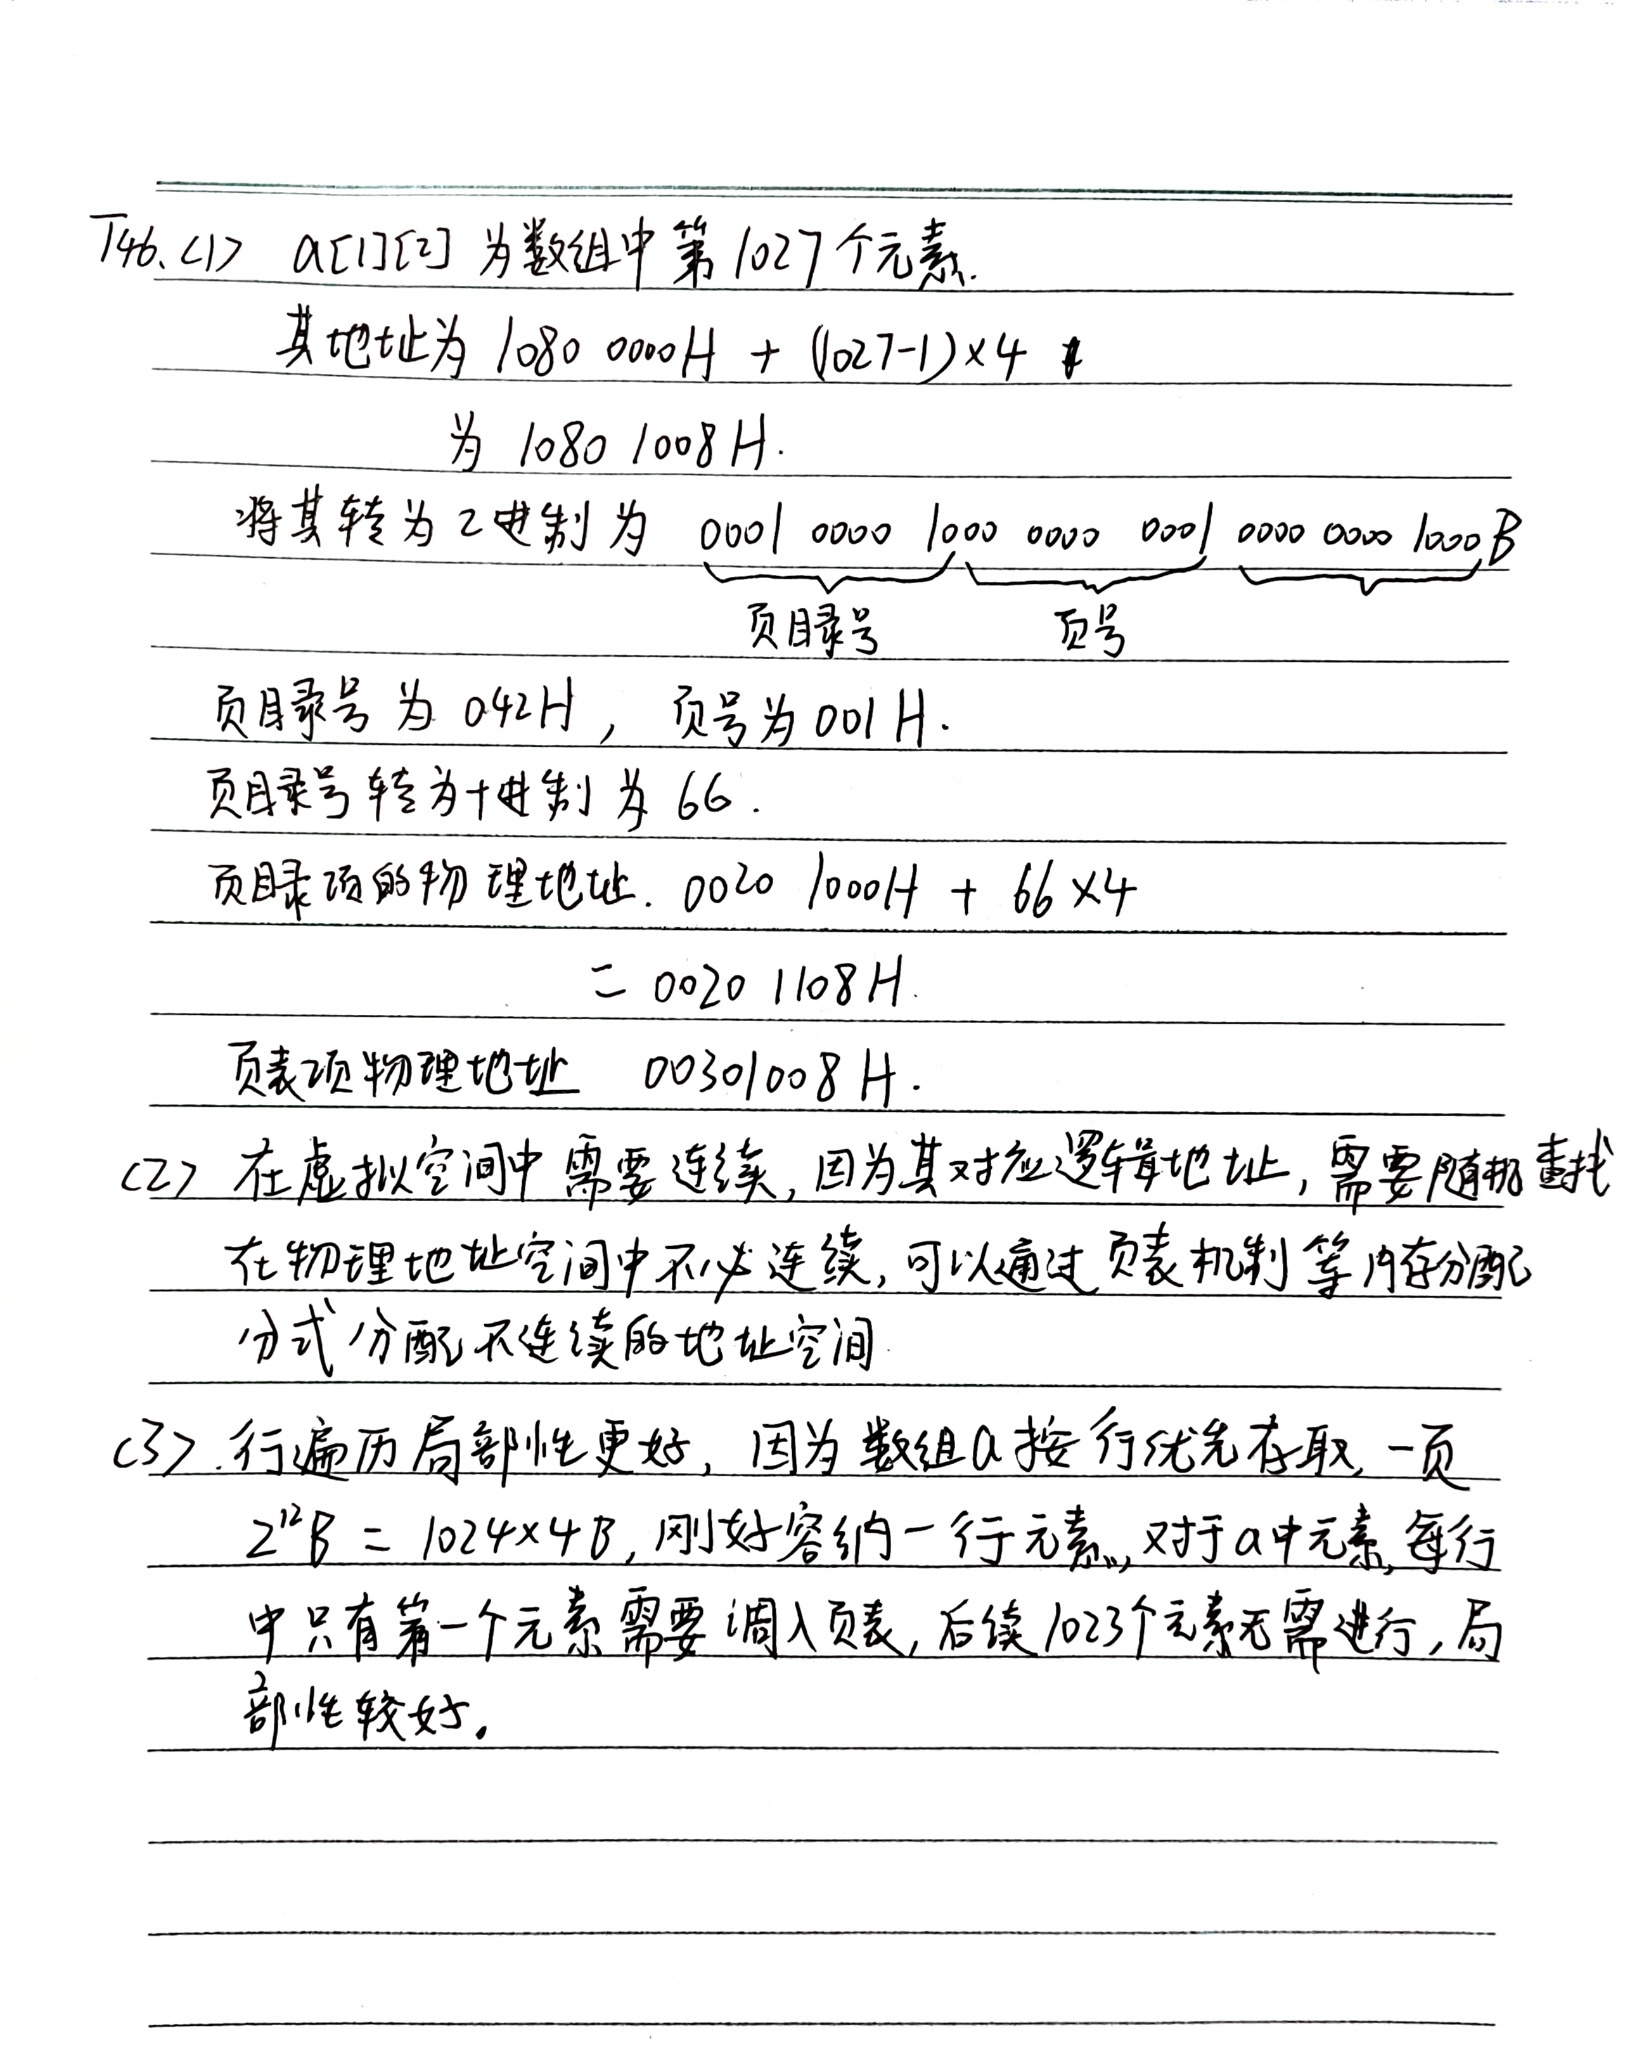 T46. (1) a[1][2] 为数组中第1027个元素.
其地址为 1080 0000H + (1027-1)×4
为 1080 1008H.
将其转为2进制为 0001 0000 1000 0000 0001 0000 0000 1000B
页目录号 页号
页目录号为 042H, 页号为001H.
页目录号转为十进制为 66.
页目录项的物理地址. 0020 1000H + 66×4
= 0020 1108H.
页表项物理地址 00301008H.
(2) 在虚拟空间中需要连续, 因为其对应逻辑地址, 需要随机查找
在物理地址空间中不必连续, 可以通过页表机制等内存分配
分式分配不连续的地址空间
(3). 行遍历局部性更好, 因为数组a按行优先存取, 一页
2¹²B = 1024×4B, 刚好容纳一行元素, 对于a中元素, 每行
中只有第一个元素需要调入页表, 后续1023个元素无需进行, 局
部性较好。